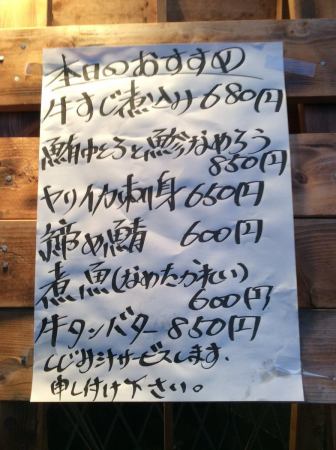 本日のおすすめ
牛すじ煮込み680円
鮪中とろと鯵なめろう
850円
ヤリイカ刺身 650円
締め鯖 600円
煮魚(なめたかれい)
600円
牛タンバター 850円
しじみ汁サービスします.
申し付け下さい。